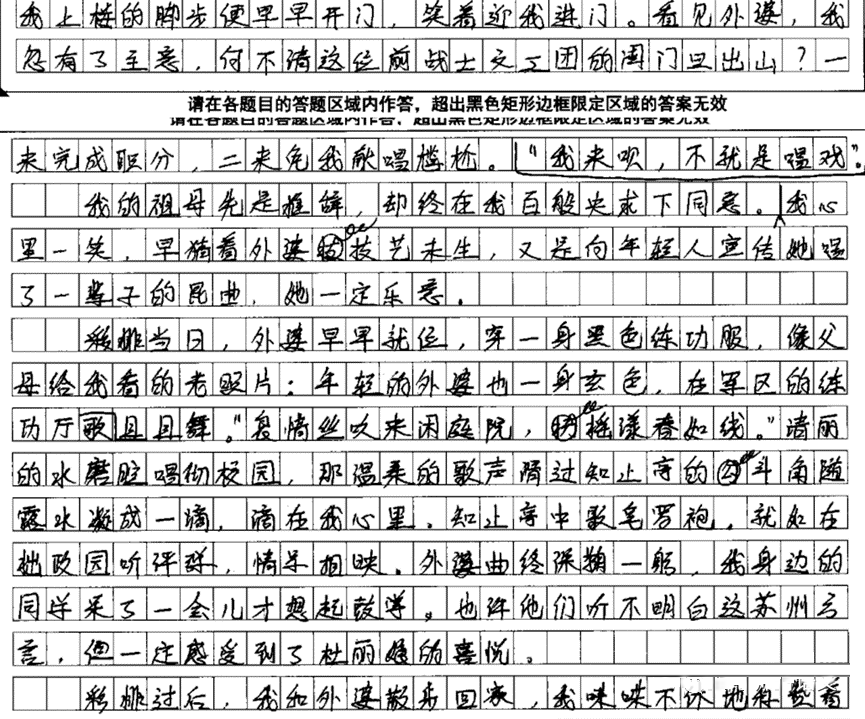 我上楼的脚步便早早开门，笑着迎我进门。看见外婆，我
忽有了主意，何不请这位前战士文工团的闺门旦出山？一
请在各题目的答题区域内作答，超出黑色矩形边框限定区域的答案无效
请在各题目的答题区域内作答，超出黑色矩形边框限定区域的答案无效
来完成职分，二来免我献唱尴尬。“我来呗，不就是唱戏”。
我的祖母先是推辞，却终在我百般央求下同意。我心
里一笑，早猜着外婆技艺未生，又是向年轻人宣传她唱
了一辈子的昆曲，她一定乐意。
彩排当日，外婆早早就位，穿一身黑色练功服，像父
母给我看的老照片：年轻的外婆也一身玄色，在军区的练
功厅歌且且舞。“袅情丝吹来闲庭院，摇漾春如线。”清丽
的水磨腔唱彻校园，那温柔的歌声滑过知止亭的斗角随
露水凝成一滴，滴在我心里。知止亭中歌皂罗袍，就如在
拙政园听评弹，情景相映。外婆曲终深鞠一躬，我身边的
同学呆了一会儿才想起鼓掌。也许他们听不明白这苏州方
言，但一定感受到了杜丽娘的喜悦。
彩排过后，我和外婆散步回家，我喋喋不休地称赞着